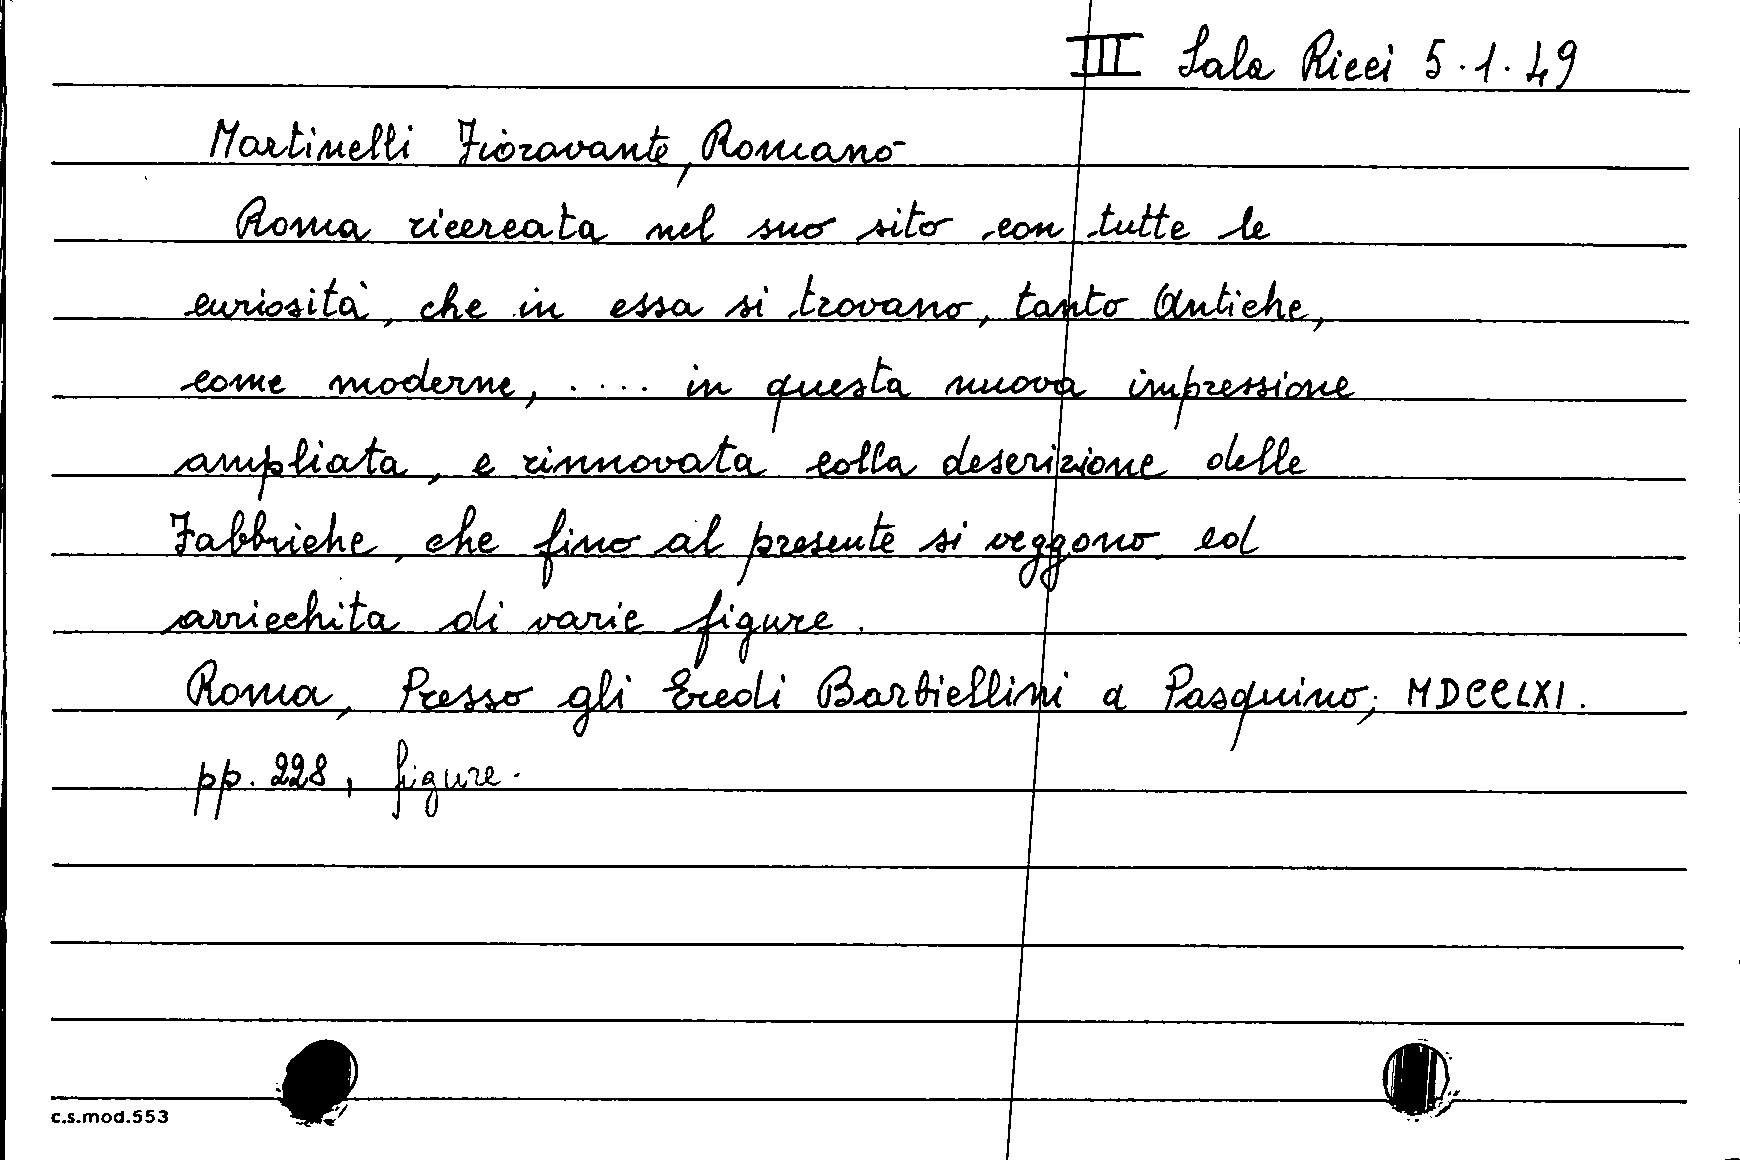 III Sala Ricci 5.1.49
Martinelli Fioravante, Romano
Roma ricercata nel suo sito con tutte le
curiosità, che in essa si trovano, tanto Antiche,
come moderne, .... in questa nuova impressione
ampliata, e rinnovata colla descrizione delle
Fabbriche, che fino al presente si veggono, ed
arricchita di varie figure.
Roma, Presso gli Eredi Barbiellini a Pasquino; MDCCLXI.
pp. 228, figure.
c.s.mod.553